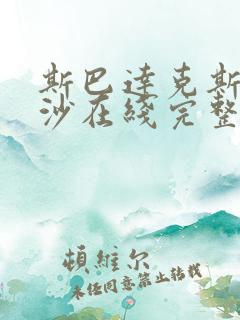 斯巴达克斯
沙在线完整
顿维尔
未经同意禁止转载